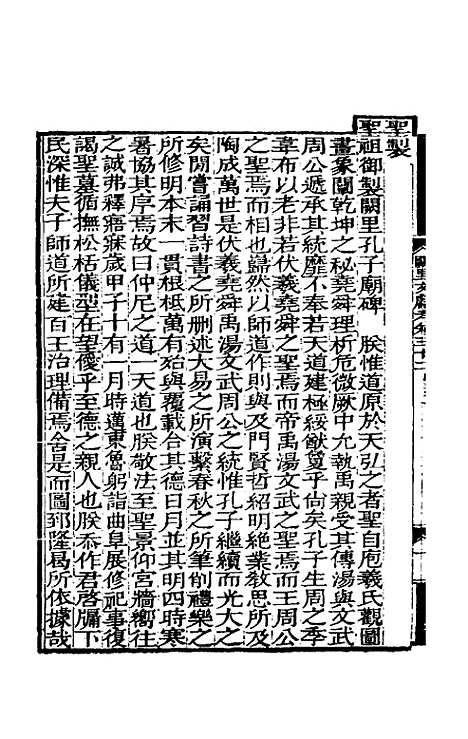 聖製
聖祖御製闕里孔子廟碑　朕惟道原於天弘之者聖自庖羲氏觀圖
畫象闡乾坤之秘堯舜理析危微厥中允執禹親受其傳湯與文武
周公遞承其統靡不奉若天道建極綏猷敻乎尚矣孔子生周之季
韋布以老非若伏羲堯舜之聖焉而帝禹湯文武之聖焉而王周公
之聖焉而相也巋然以師道作則與及門賢哲紹明絕業教思所及
陶成萬世是伏羲堯舜禹湯文武周公之統惟孔子繼續而光大之
矣間嘗誦習詩書之所刪述大易之所演繫春秋之所筆削禮樂之
所修明本末一貫根柢萬有始與覆載合其德日月並其明四時寒
暑協其序焉故曰仲尼之道一天道也朕敬法至聖景仰宮牆嚮往
之誠弗釋寤寐歲甲子十有一月時邁東魯躬詣曲阜展修祀事復
謁聖墓循撫松栝儀型在望僾乎至德之親人也朕忝作君啓牖下
民深惟夫子師道所建百王治理備焉舍是而圖郅隆曷所依據哉